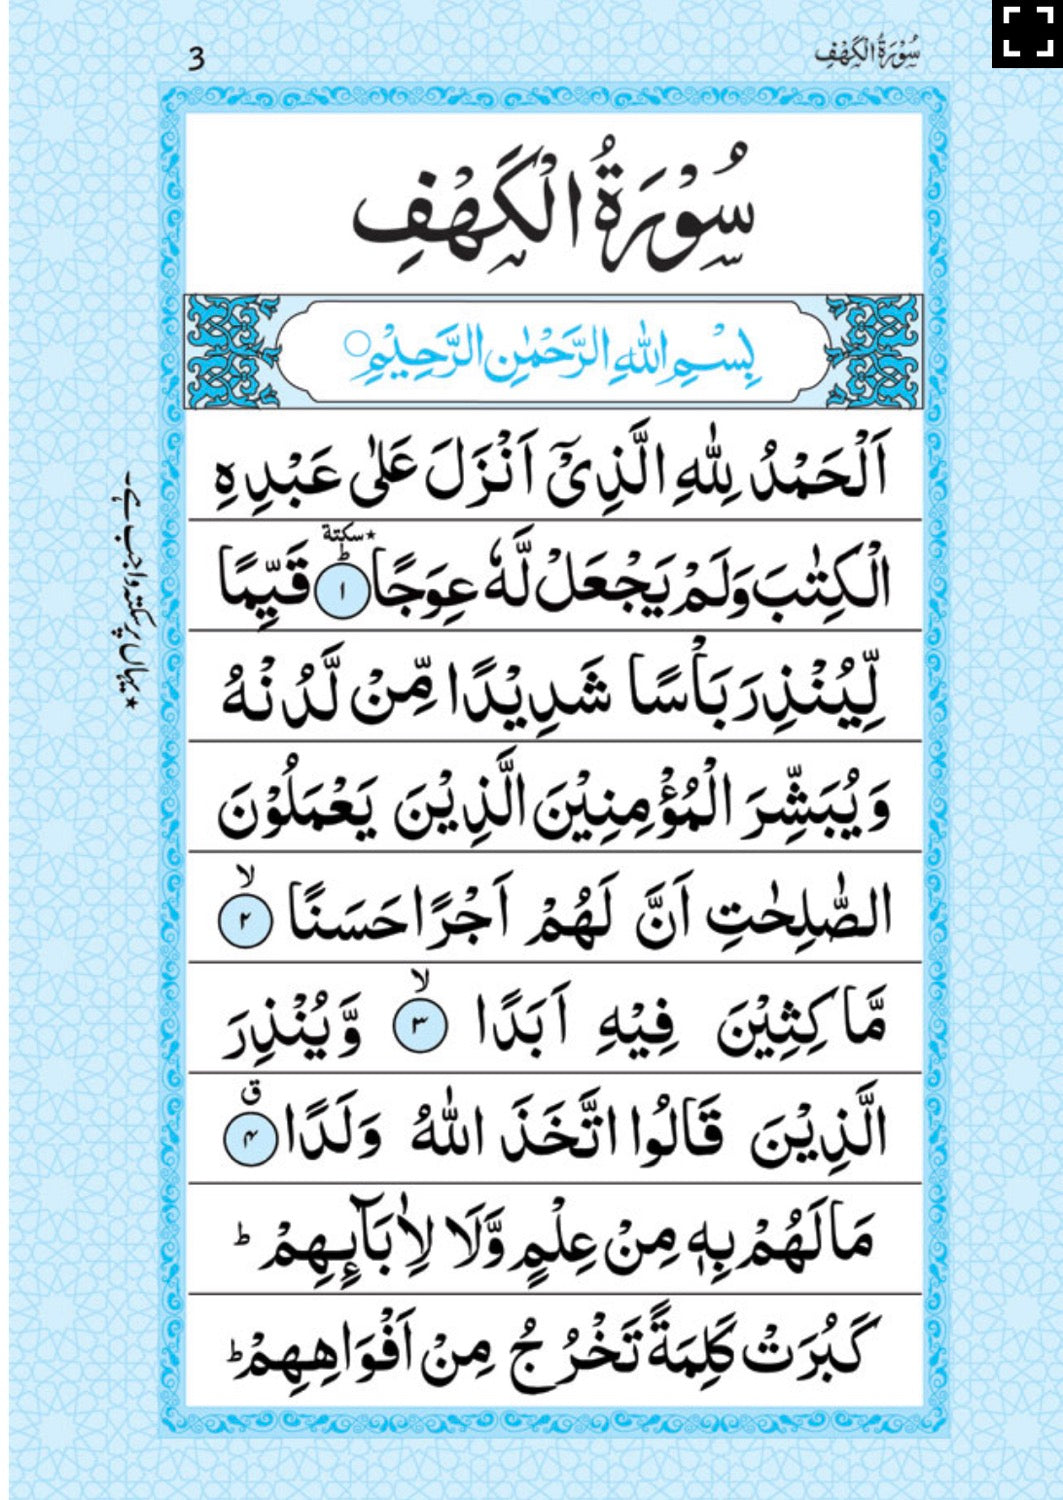 3
سُوْرَةُ الْكَهْفِ
سُوْرَةُ الْكَهْفِ
بِسْمِ اللّٰهِ الرَّحْمٰنِ الرَّحِيْمِ○
اَلْحَمْدُ لِلّٰهِ الَّذِيْٓ اَنْزَلَ عَلٰى عَبْدِهِ
الْكِتٰبَ وَلَمْ يَجْعَلْ لَّهٗ عِوَجًا ؕ ٭سكتة ۝۱ قَيِّمًا
لِّيُنْذِرَ بَاْسًا شَدِيْدًا مِّنْ لَّدُنْهُ
وَيُبَشِّرَ الْمُؤْمِنِيْنَ الَّذِيْنَ يَعْمَلُوْنَ
الصّٰلِحٰتِ اَنَّ لَهُمْ اَجْرًا حَسَنًا ۙ ۝۲
مَّاكِثِيْنَ فِيْهِ اَبَدًا ۙ ۝۳ وَّيُنْذِرَ
الَّذِيْنَ قَالُوا اتَّخَذَ اللّٰهُ وَلَدًا ق ۝۴
مَا لَهُمْ بِهٖ مِنْ عِلْمٍ وَّلَا لِاٰبَآئِهِمْ ؕ
كَبُرَتْ كَلِمَةً تَخْرُجُ مِنْ اَفْوَاهِهِمْ ؕ
٭یہاں پر سکتہ واجب ہے۔